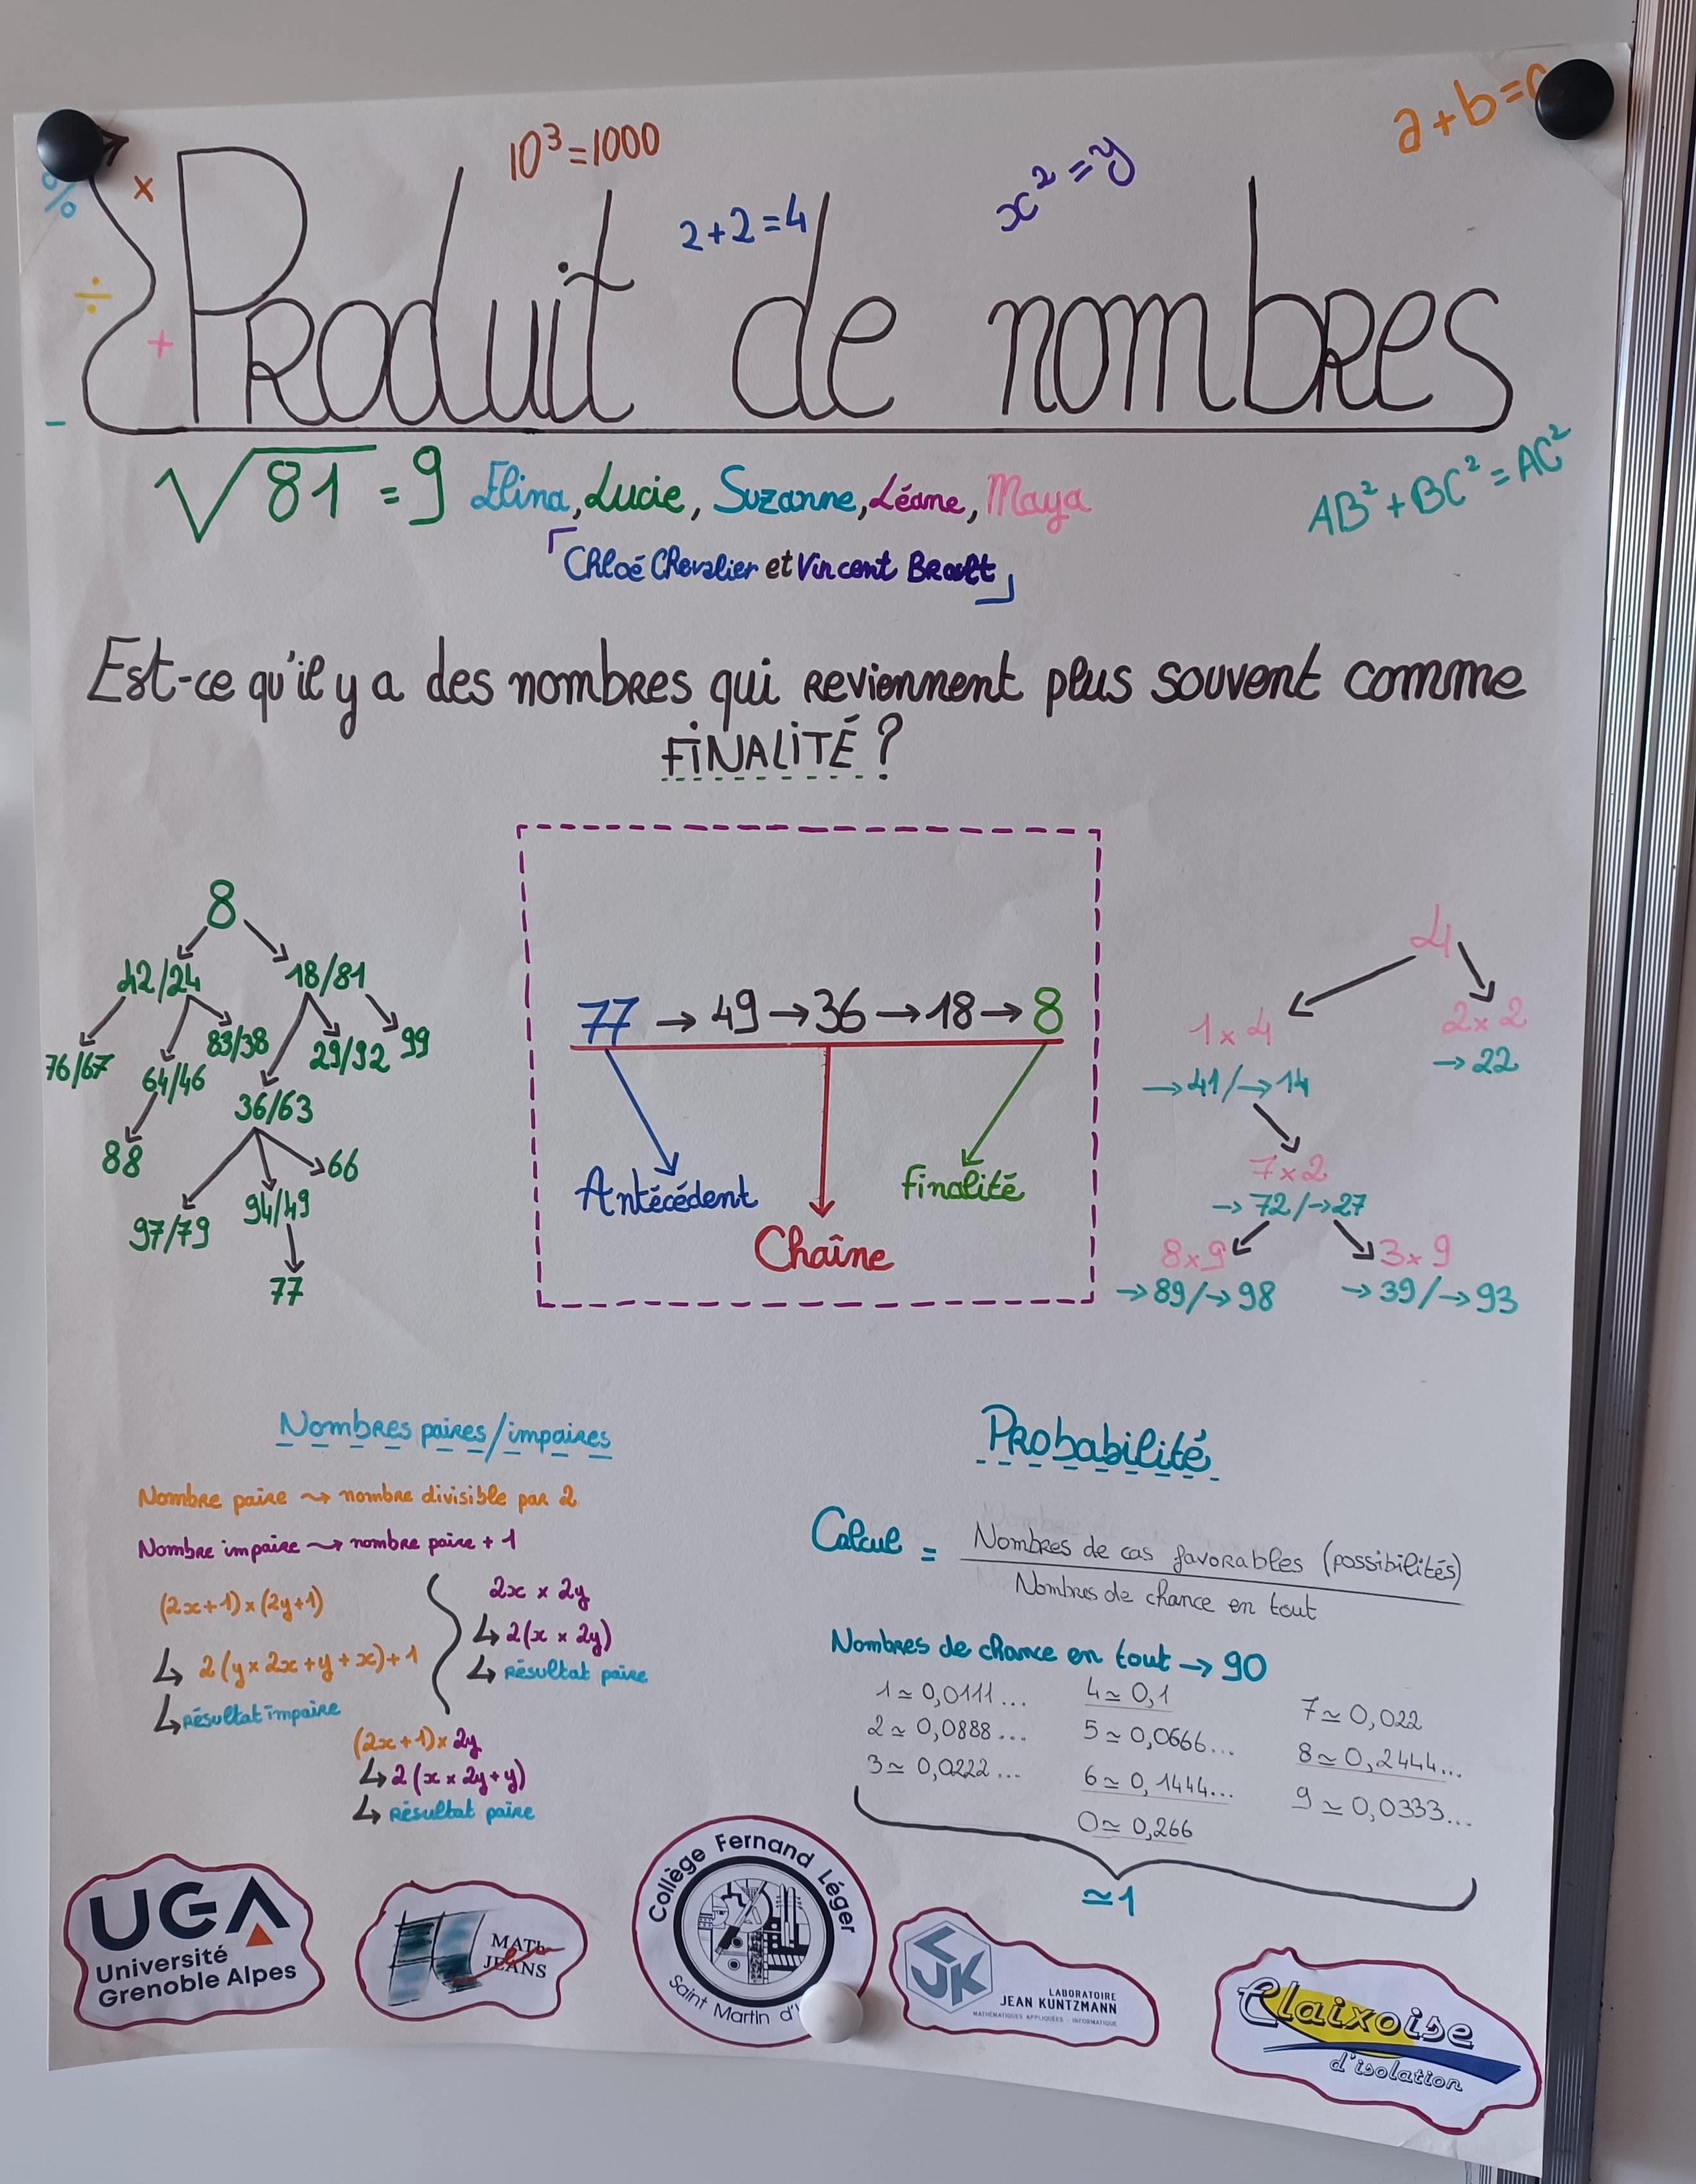 10³=1000
a+b=
x²=y
2+2=4
%
x
÷
+
-
Produit de nombres
√81=9
Elina, Lucie, Suzanne, Léane, Maya
AB²+BC²=AC²
「Chloé Chevalier et Vincent Brault」
Est-ce qu'il y a des nombres qui reviennent plus souvent comme
FINALITÉ?
8
42/24 18/81
76/67 64/46 83/38 29/92 99
88 36/63
97/79 94/49 66
77
77 → 49 → 36 → 18 → 8
Antécédent
Chaîne
finalité
4
1x4 2x2
→41/→14 →22
7x2
→72/→27
8x9 3x9
→89/→98 →39/→93
Nombres paires/impaires
Nombre paire ⇝ nombre divisible par 2
Nombre impaire ⇝ nombre paire + 1
(2x+1)×(2y+1)
↳ 2(y×2x+y+x)+1
↳ résultat impaire
2x × 2y
↳ 2(x × 2y)
↳ résultat paire
(2x+1)×2y
↳ 2(x × 2y+y)
↳ résultat paire
Probabilité
Calcul = Nombres de cas favorables (possibilités)
Nombres de chance en tout
Nombres de chance en tout → 90
1 ≃ 0,0111...
2 ≃ 0,0888...
3 ≃ 0,0222...
4 ≃ 0,1
5 ≃ 0,0666...
6 ≃ 0,1444...
0 ≃ 0,266
7 ≃ 0,022
8 ≃ 0,2444...
9 ≃ 0,0333...
≃1
UGA
Université
Grenoble Alpes
MATh
JEANS
Collège Fernand Léger
Saint Martin d'
LJK
LABORATOIRE
JEAN KUNTZMANN
MATHÉMATIQUES APPLIQUÉES - INFORMATIQUE
Claixoise
d'isolation